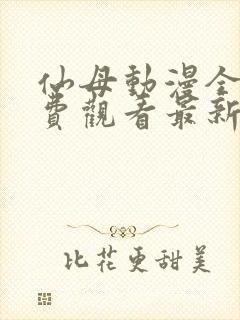 仙母動漫全
費觀看最新
比花更甜美